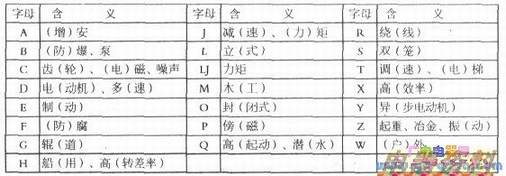 字母 含 义 字母 含 义 字母 含 义
A （增）安 J 减（速）、（力）矩 R 绕（线）
B （防）爆、泵 L 立（式） S 双（笼）
C 齿（轮）、（电）磁、噪声 LJ 力矩 T 调（速）、（电）梯
D 电（动机）、多（速） M 木（工） X 高（效率）
E 制（动） O 封（闭式） Y 异（步电动机）
F （防）腐 P 傍（磁） Z 起重、冶金、振（动）
G 辊（道） Q 高（起动）、潜（水） W （户）外
H 船（用）、高（转差率）